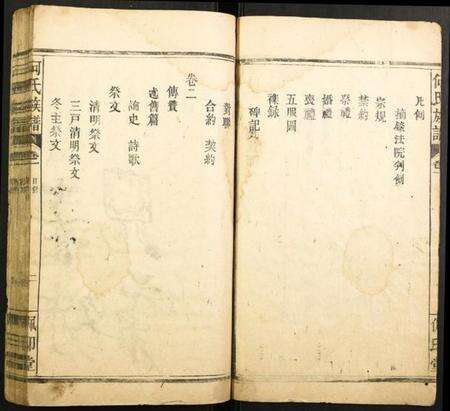 凡例
摘錄法院判例
宗規
禁約
祭禮
婚禮
喪禮
五服圖
碑記
合約 契約
卷二
傳贊
述舊篇
論史 詩歌
祭文
清明祭文
三戸清明祭文
冬主祭文
何氏族譜
何氏族譜
佩印堂